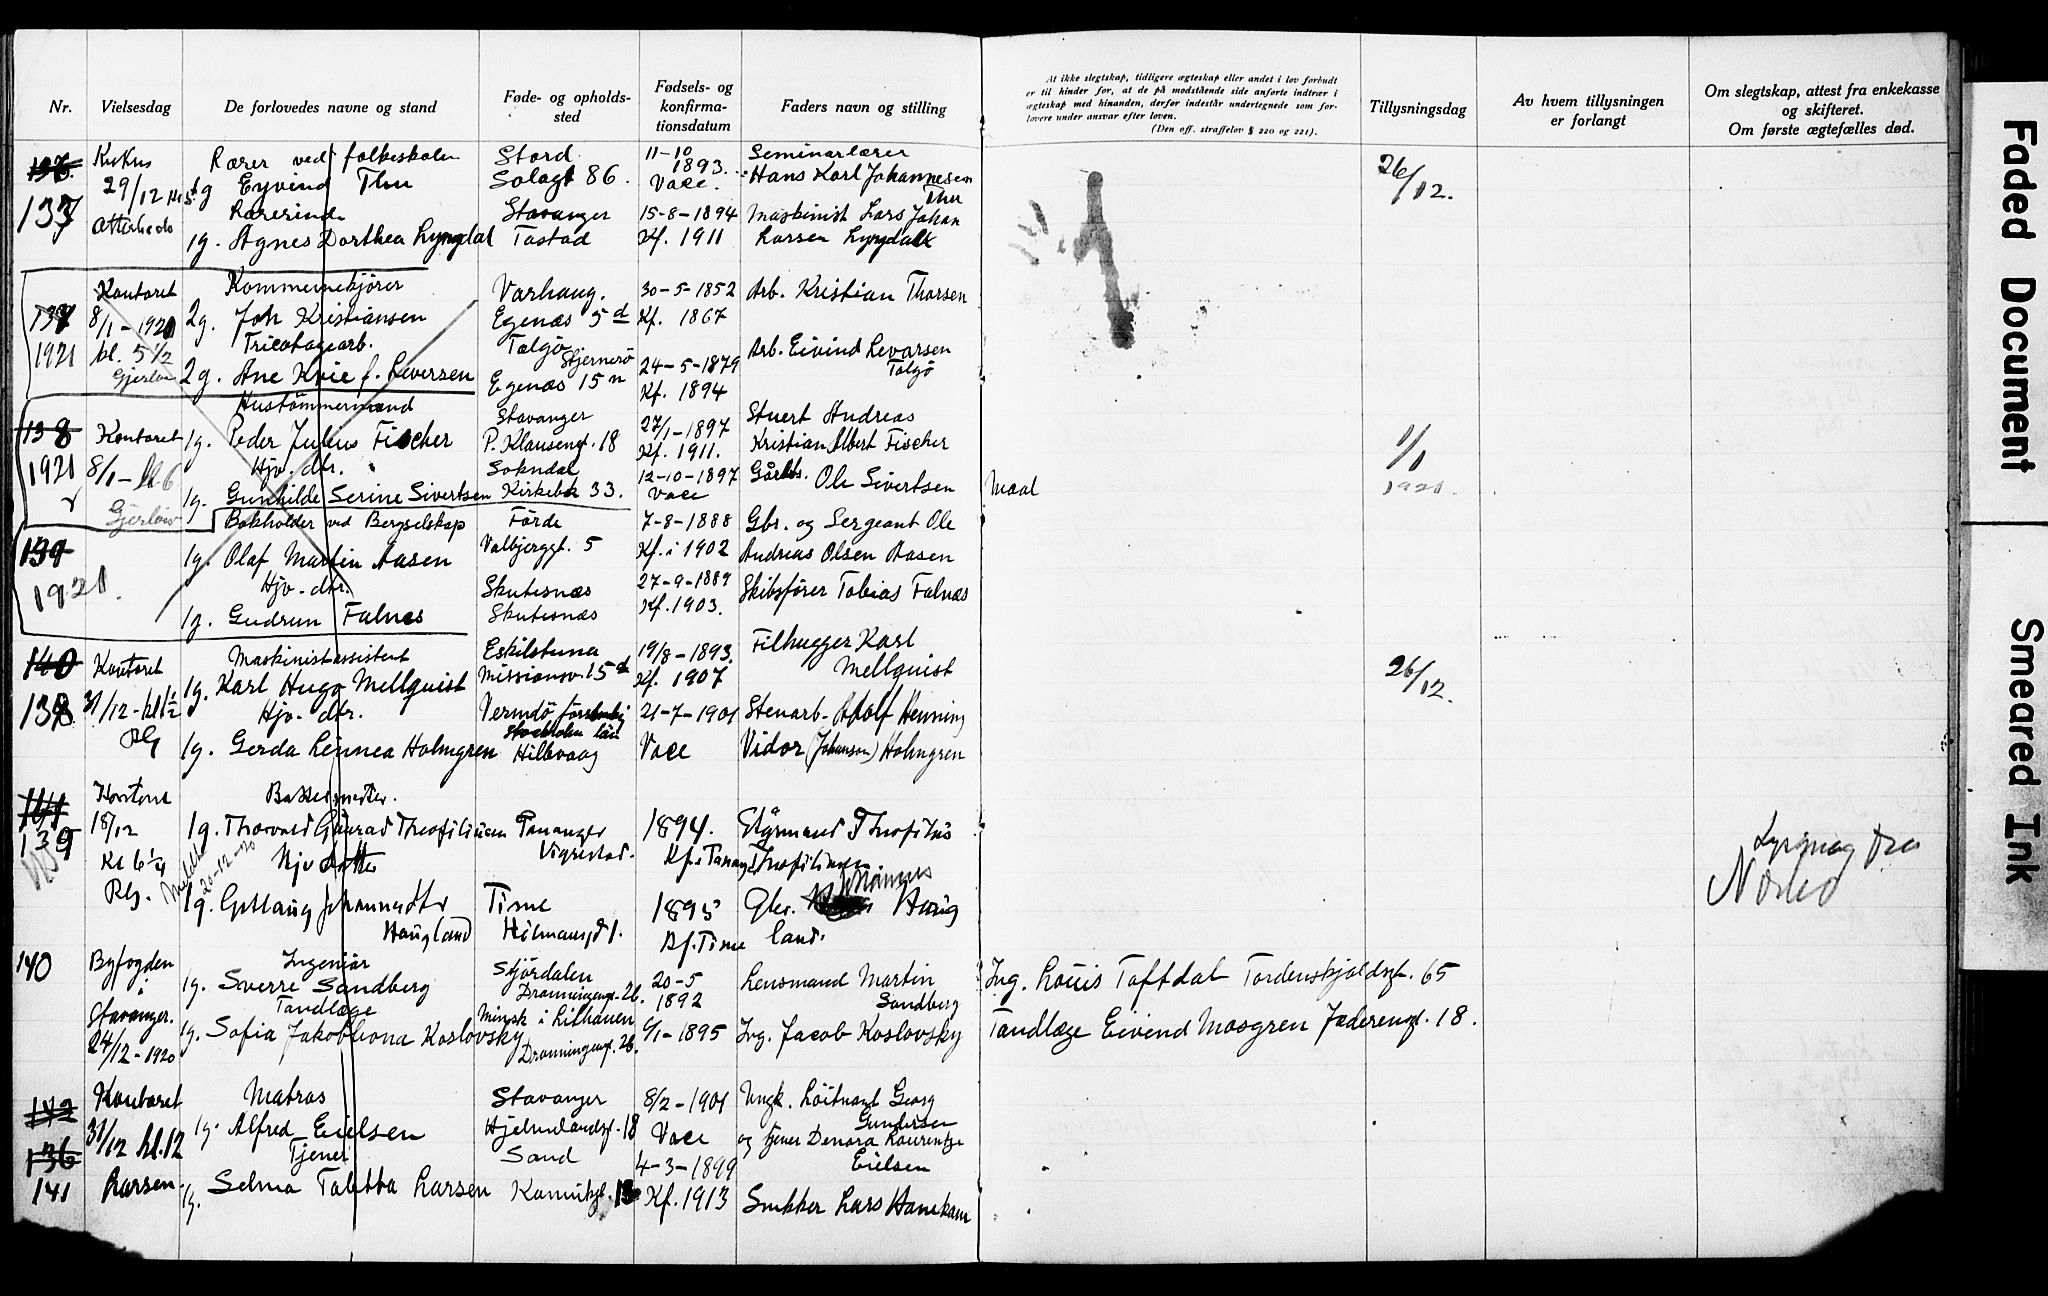 Nr.
Vielsesdag
De forlovedes navne og stand
Føde- og opholds-
sted
Fødsels- og
konfirma-
tionsdatum
Faders navn og stilling
At ikke slegtskap, tidligere ægteskap eller andet i lov forbudt
er til hinder for, at de på modstående side anførte indtrær i
ægteskap med hinanden, derfor indestår undertegnede som for-
lovere under ansvar efter loven.
(Den off. straffelov § 220 og 221).
Tillysningsdag
Av hvem tillysningen
er forlangt
Om slegtskap, attest fra enkekasse
og skifteret.
Om første ægtefælles død.
137
29/12
Lærer ved folkeskolen
1g Eyvind Thu
Lærerinde
1g. Agnes Dorthea Lyngdal
Stord
Solagt 86.
Stavanger
Tastad
11-10
1893.
Vacc.
15-8-1894
Kf. 1911
Seminarlærer
Hans Karl Johannesen
Thu
Maskinist Lars Johan
Larsen Lyngdal
26/12.
137
1921
Kontoret
8/1-1921
kl. 5 1/2
Kommunekjører
2g. Joh Kristiansen
Tricotagearb.
2g. Ane Kvie f. Leversen
Varhaug.
Egenæs 5 d
Talgø
Stjernerø
Egenæs 15 n
30-5-1852
Kf. 1867
24-5-1879
Kf. 1894
Arb. Kristian Thorsen
Arb. Eivind Levarsen
Talgø
138
1921
Kontoret
8/1 - kl 6
Hustømmermand
1g. Peder Julius Fischer
Hjv. dtr.
1g. Gunhilde Serine Sivertsen
Stavanger
P. Klausengt. 18
Sokndal
Kirkebk 33.
27/1-1897
Kf. 1911.
12-10-1897
Vacc
Stuert Andreas
Kristian Albert Fischer
Gårdbr. Ole Sivertsen
1/1
1921.
139
1921.
Bokholder ved Bergselskap
1g. Olaf Martin Aasen
Hjv. dtr.
1g. Gudrun Falnes
Førde
Valbjerggt. 5
Skutesnæs
Skutesnæs
7-8-1888
Kf. i 1902
27-9-1889
Kf. 1903.
Gbr. og Sergeant Ole
Andreas Olsen Aasen
Skibsfører Tobias Falnæs
140
138
Kontoret
31/12 - kl 1 1/2
Maskinistassistent
1g. Karl Hugo Mellquist
Hjv. dtr.
1g. Gerda Linnea Holmgren
Eskilstuna
Missionsv. 15 d
Vermdö
Stockholm län
Hillevaag
19/8-1893.
Kf. 1907
21-7-1901
Vacc
Filhugger Karl
Mellquist
Stenarb. Adolf Henning
Vidor (Johanson) Holmgren
26/12.
141
139
Kontoret
18/12
Kl 6 1/4
20-12-20
1g. Thorvald Theofiliusen
Hjv datter
1g. Gøtlaug Johannesdtr
Haugland
Tananger
Vigrestad.
Time
1894.
1895
Kf. Time
Theofilius
Johannes
Haug
land.
Lysning fra
Nærbø
140
Byfogden
i
Stavanger.
24/12-1920
Ingeniør
1g. Sverre Sandberg
Tandlæge
1g. Sofia Jakoblevna Koslovsky
Stjørdalen
Dronningengt. 26.
Minsk i Lithauen
Dronningengt. 26.
20-5
1892
6/1-1895
Lensmand Martin
Sandberg
Ing. Jacob Koslovsky
Ing. Louis Taftdal Tordenskjoldsgt. 65
Tandlæge Eivind Mosgren Jæderengt. 18.
142
136
141
Kontoret
31/12 kl. 12
Larsen.
Matros
1g. Alfred Eielsen
Tjener
1g. Selma Talitta Larsen
Stavanger
Hjelmelandsgt. 18
Sand
8/2-1901
Vacc
4-3-1899
Kf. 1913
Ungk. Løitnant Georg
Gundersen
og tjener Denora Laurentze
Eielsen
Snekker Lars Hanekam
Faded Document
Smeared Ink